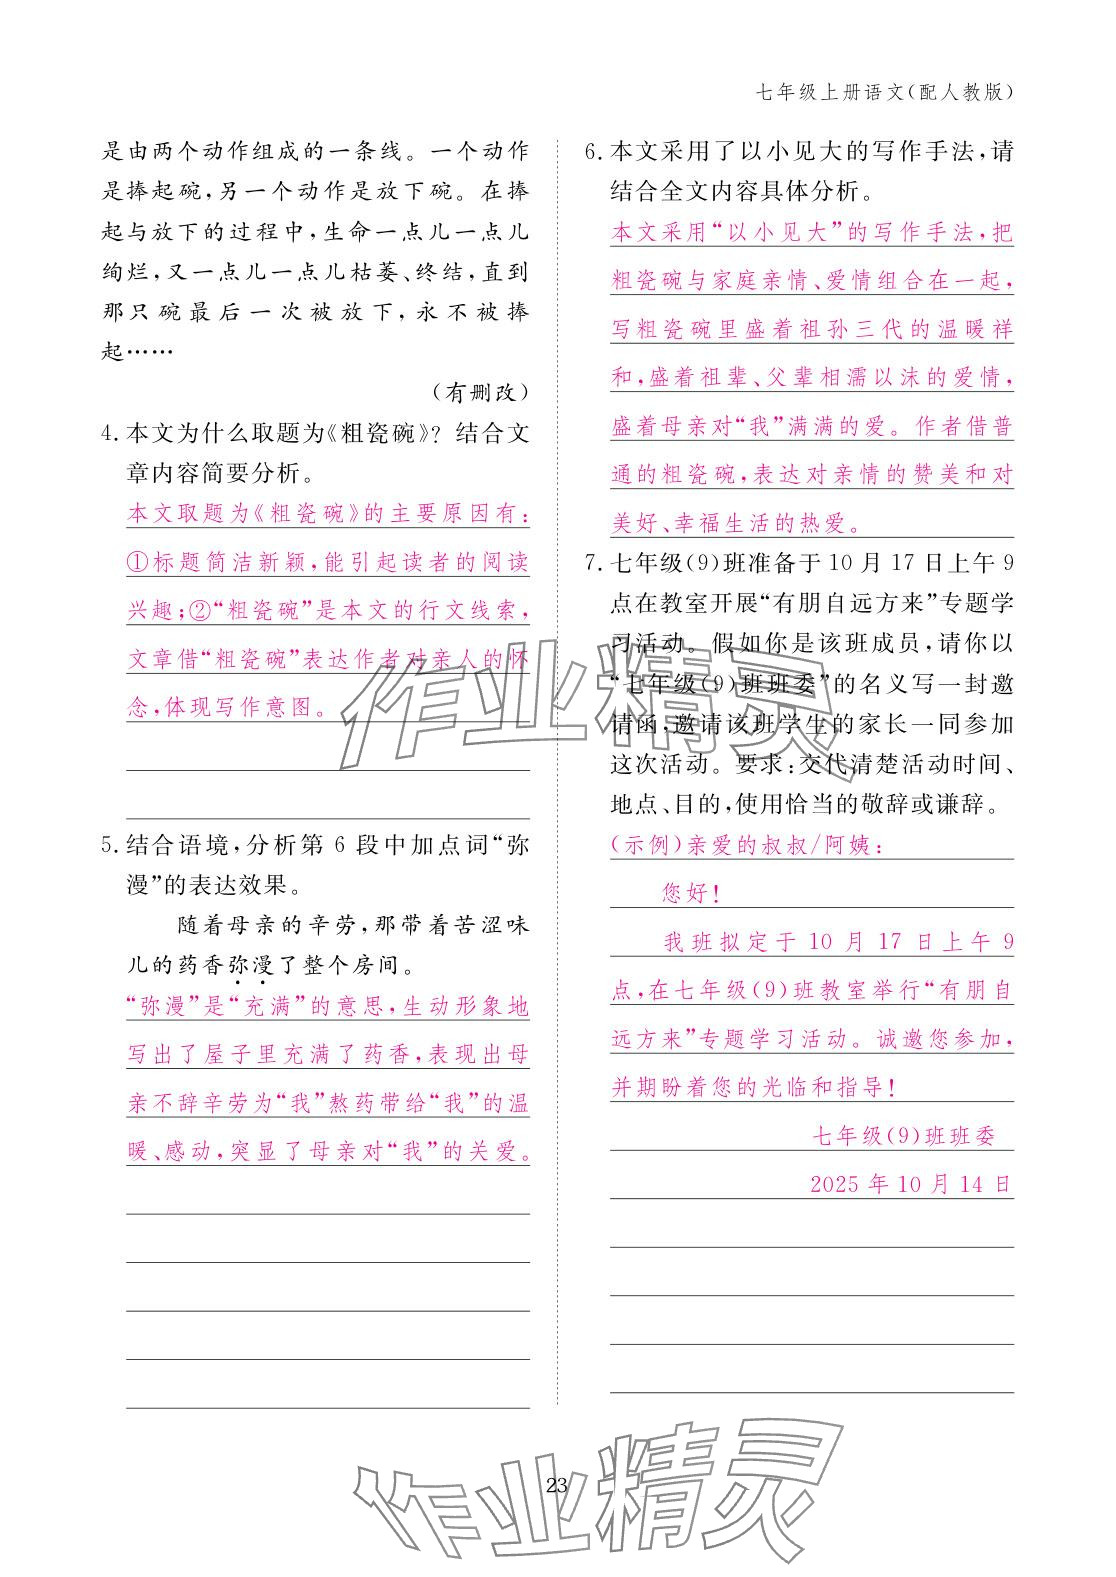 七年级上册语文(配人教版)
是由两个动作组成的一条线。一个动作
是捧起碗,另一个动作是放下碗。在捧
起与放下的过程中,生命一点儿一点儿
绚烂,又一点儿一点儿枯萎、终结,直到
那只碗最后一次被放下,永不被捧
起……
(有删改)
4. 本文为什么取题为《粗瓷碗》?结合文
章内容简要分析。
本文取题为《粗瓷碗》的主要原因有:
①标题简洁新颖,能引起读者的阅读
兴趣;②“粗瓷碗”是本文的行文线索,
文章借“粗瓷碗”表达作者对亲人的怀
念,体现写作意图。
5. 结合语境,分析第 6 段中加点词“弥
漫”的表达效果。
随着母亲的辛劳,那带着苦涩味
儿的药香弥漫了整个房间。
“弥漫”是“充满”的意思,生动形象地
写出了屋子里充满了药香,表现出母
亲不辞辛劳为“我”熬药带给“我”的温
暖、感动,突显了母亲对“我”的关爱。
6. 本文采用了以小见大的写作手法,请
结合全文内容具体分析。
本文采用“以小见大”的写作手法,把
粗瓷碗与家庭亲情、爱情组合在一起,
写粗瓷碗里盛着祖孙三代的温暖祥
和,盛着祖辈、父辈相濡以沫的爱情,
盛着母亲对“我”满满的爱。作者借普
通的粗瓷碗,表达对亲情的赞美和对
美好、幸福生活的热爱。
7. 七年级(9)班准备于 10 月 17 日上午 9
点在教室开展“有朋自远方来”专题学
习活动。假如你是该班成员,请你以
“七年级(9)班班委”的名义写一封邀
请函,邀请该班学生的家长一同参加
这次活动。要求:交代清楚活动时间、
地点、目的,使用恰当的敬辞或谦辞。
(示例)亲爱的叔叔/阿姨:
您好!
我班拟定于 10 月 17 日上午 9
点,在七年级(9)班教室举行“有朋自
远方来”专题学习活动。诚邀您参加,
并期盼着您的光临和指导!
七年级(9)班班委
2025 年 10 月 14 日
作业精灵
作业精灵
23